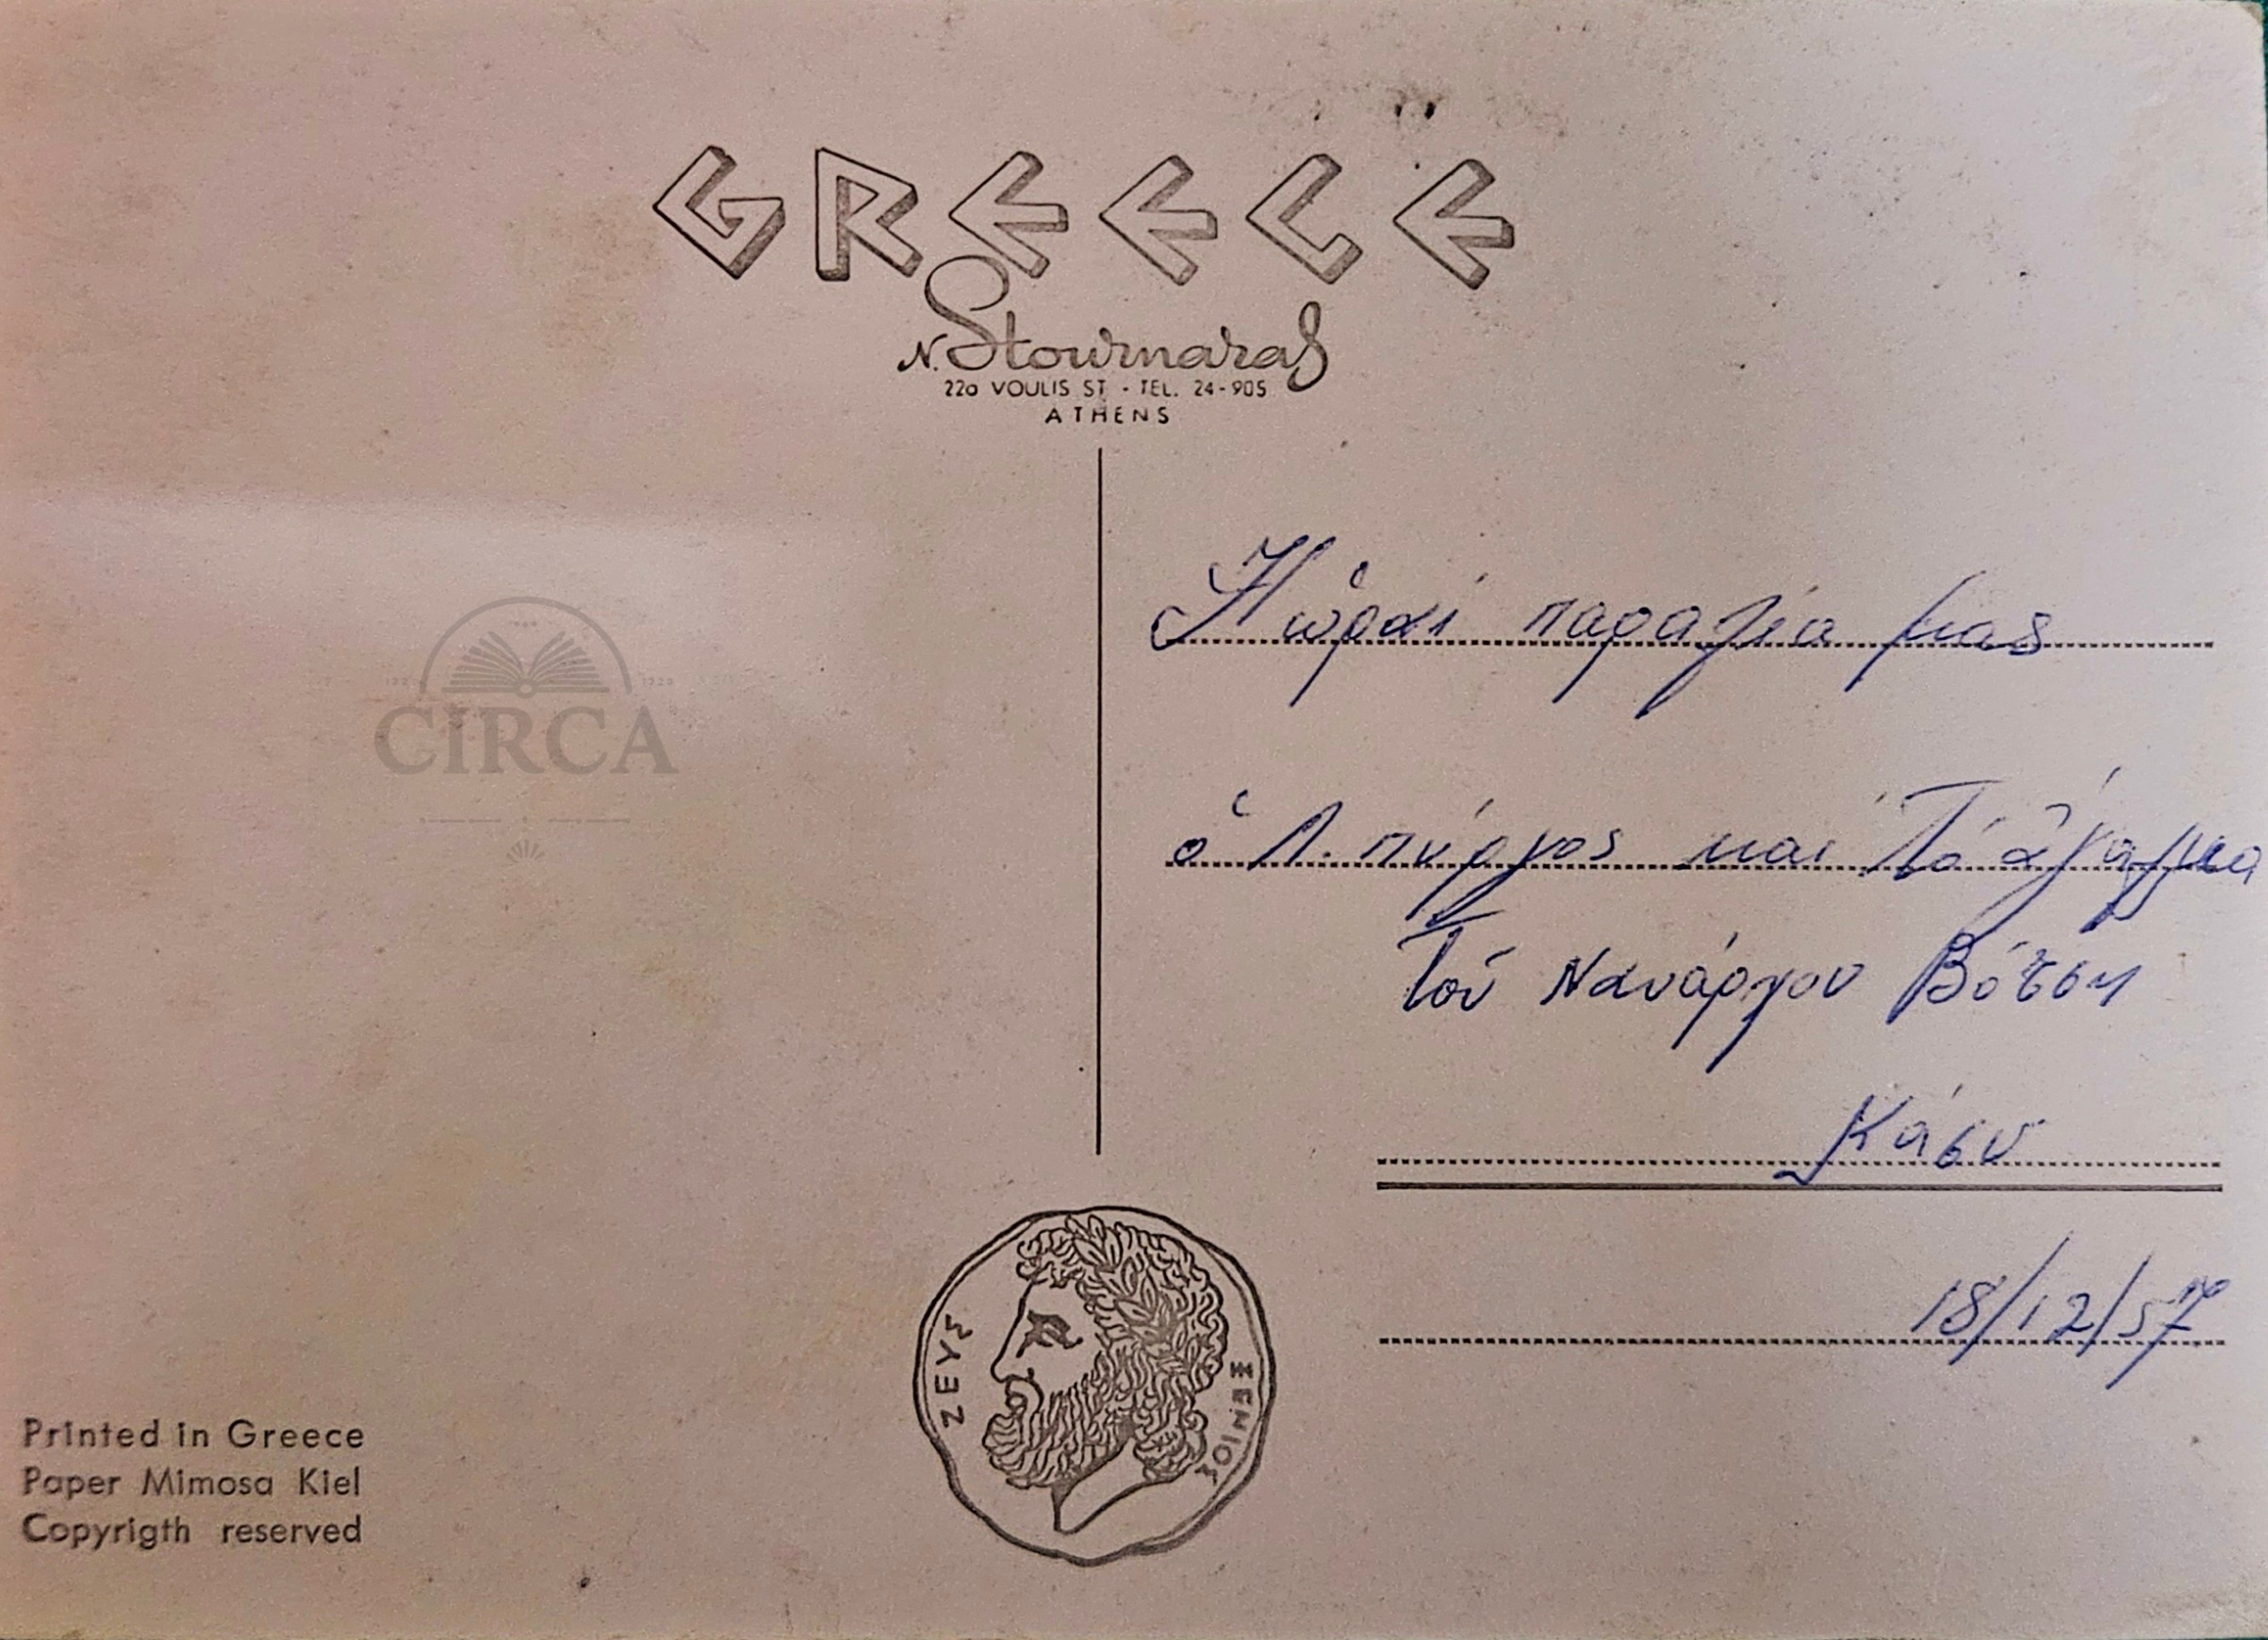 GREECE
N. Stournaras
22α VOULIS ST. - TEL. 24-905
ATHENS
CIRCA
Ἡ ὡραί παραλία μας
ὁ Λ. πύργος καί Τό ἄγαλμα
τοῦ Ναυάρχου Βότση
18/12/57
ΖΕΥΣ
ΞΕΝΙΟΣ
Printed in Greece
Paper Mimosa Kiel
Copyrigth reserved